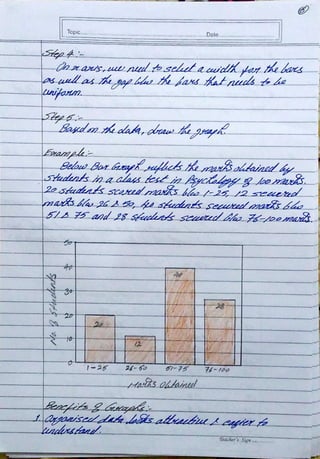 Topic
Date
Step 4 :-
On x axis, we need to select a width for the bars
as well as the gap b/w the bars that needs to be
uniform.
Step 5 :-
Based on the data, draw the graph.
Example :-
Below Bar Graph reflects the marks obtained by
students in a class test in Psychology of 100 marks.
20 students scored marks b/w 1-25, 12 secured
marks b/w 26 & 50, 40 students secured marks b/w
51 & 75 and 28 students secured b/w 76-100 marks.
50
40
30
20
10
0
No. of Students
20
12
40
28
1-25 26-50 51-75 76-100
Marks Obtained
Benefits of Graphs :-
1. Organised data looks attractive & easier to
understand.
Teacher's Sign